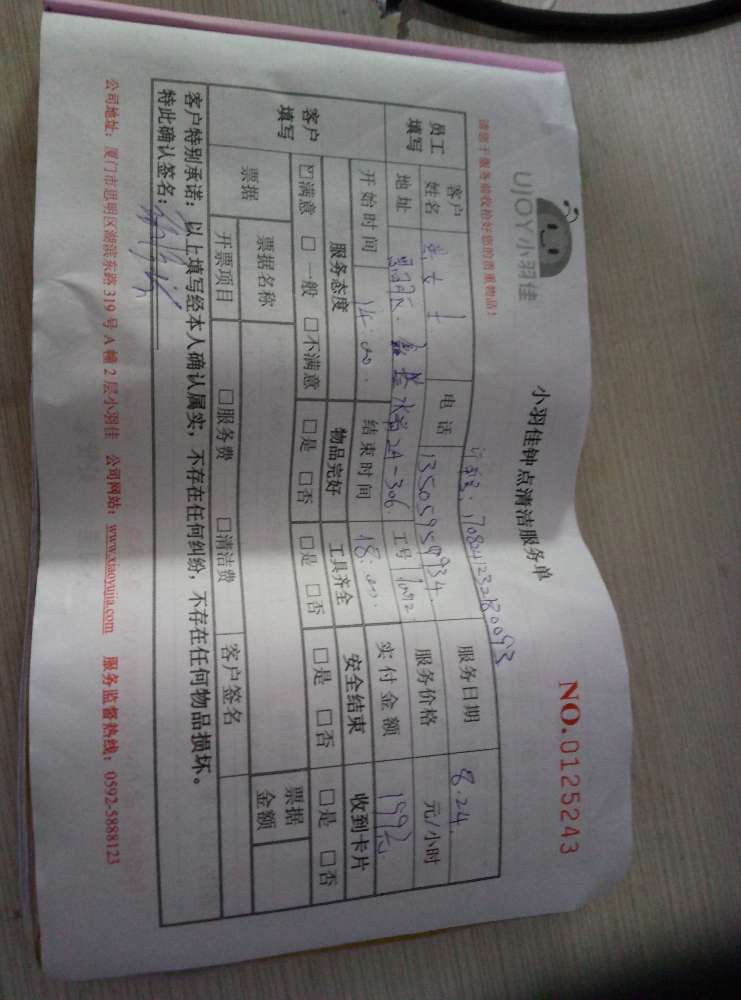 UJOY小羽佳
小羽佳钟点清洁服务单
NO.0125243
请您于服务前收拾好您的贵重物品!
员工填写 客户姓名 女士 电话 13505959934 服务日期 8.24
地址 2A-306 工号 服务价格 元/小时
开始时间 14:00 结束时间 18:00 实付金额 199元
客户填写 服务态度 物品完好 工具齐全 安全结束 收到卡片
☑满意 □一般 □不满意 □是 □否 □是 □否 □是 □否 □是 □否
票据 票据名称 票据金额
开票项目 □服务费 □清洁费 客户签名
客户特别承诺:以上填写经本人确认属实,不存在任何纠纷,不存在任何物品损坏。
特此确认签名:
公司地址:厦门市思明区湖滨东路319号A幢2层小羽佳 公司网站:www.xiaoyujia.com 服务监督热线:0592-5888123